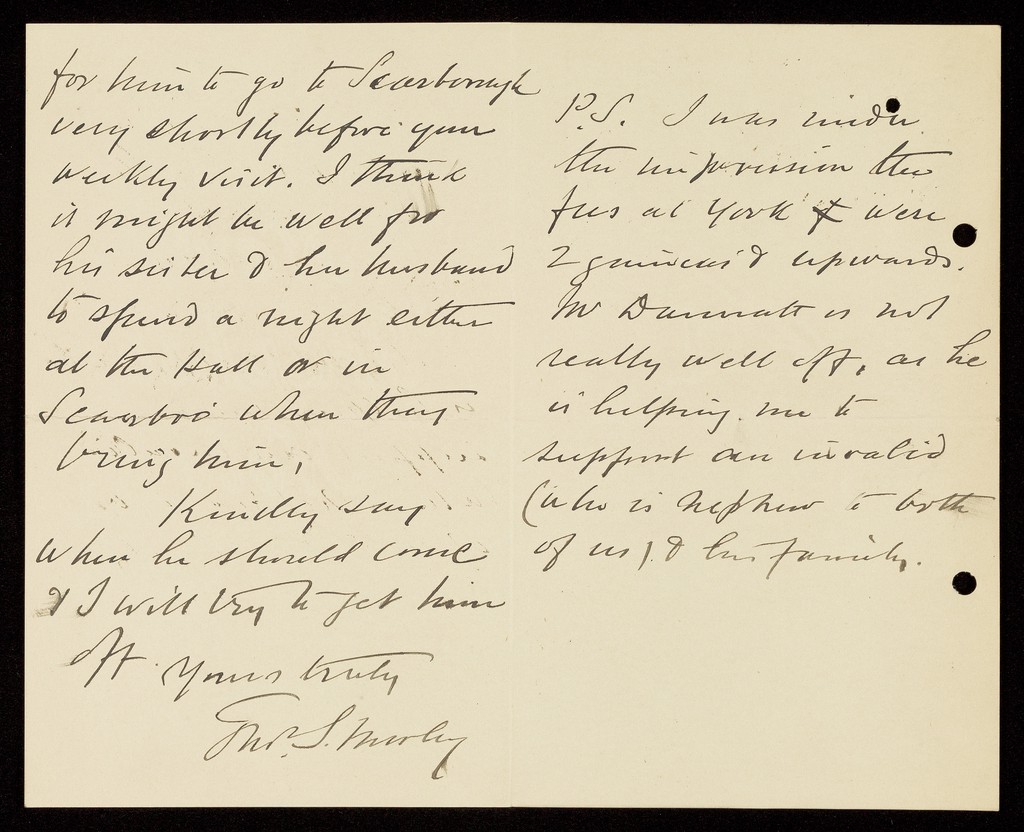 for him to go to Scarborough
very shortly before your
weekly visit. I think
it might be well for
his sister & her husband
to spend a night either
at the Hall or in
Scarbro' when they
bring him,
Kindly say
when he should come
& I will try to get him
off. Yours truly
Thos. S. Morley
P.S. I was under
the impression the
fees at York were
2 guineas & upwards.
Mr Dannatt is not
really well off, as he
is helping me to
support an invalid
(who is nephew to both
of us) & his family.